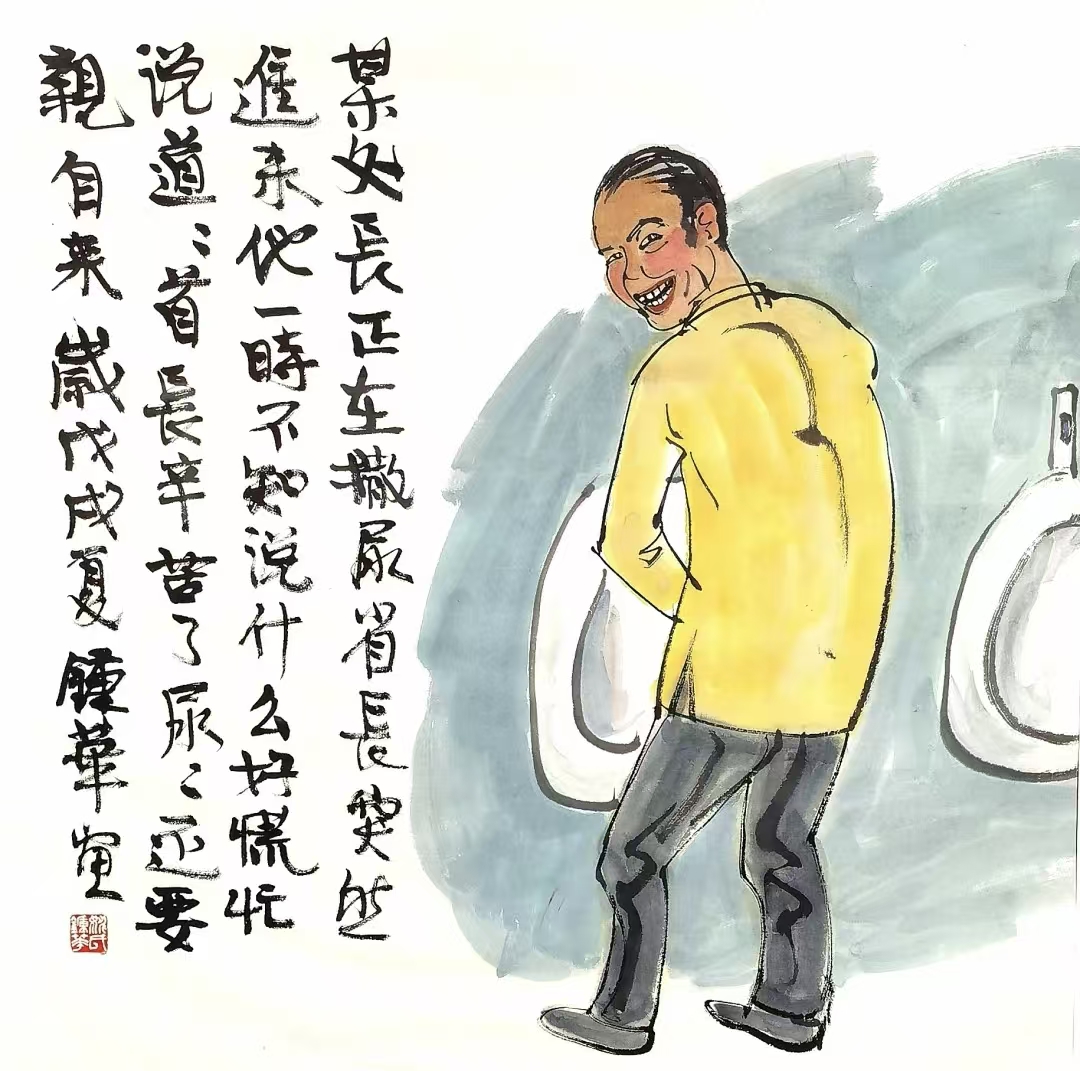 某处長正在撒尿省長突然
進来他一時不知说什么好慌忙
说道：首長辛苦了尿々还要
親自来 歲戊戌夏 鍾華画